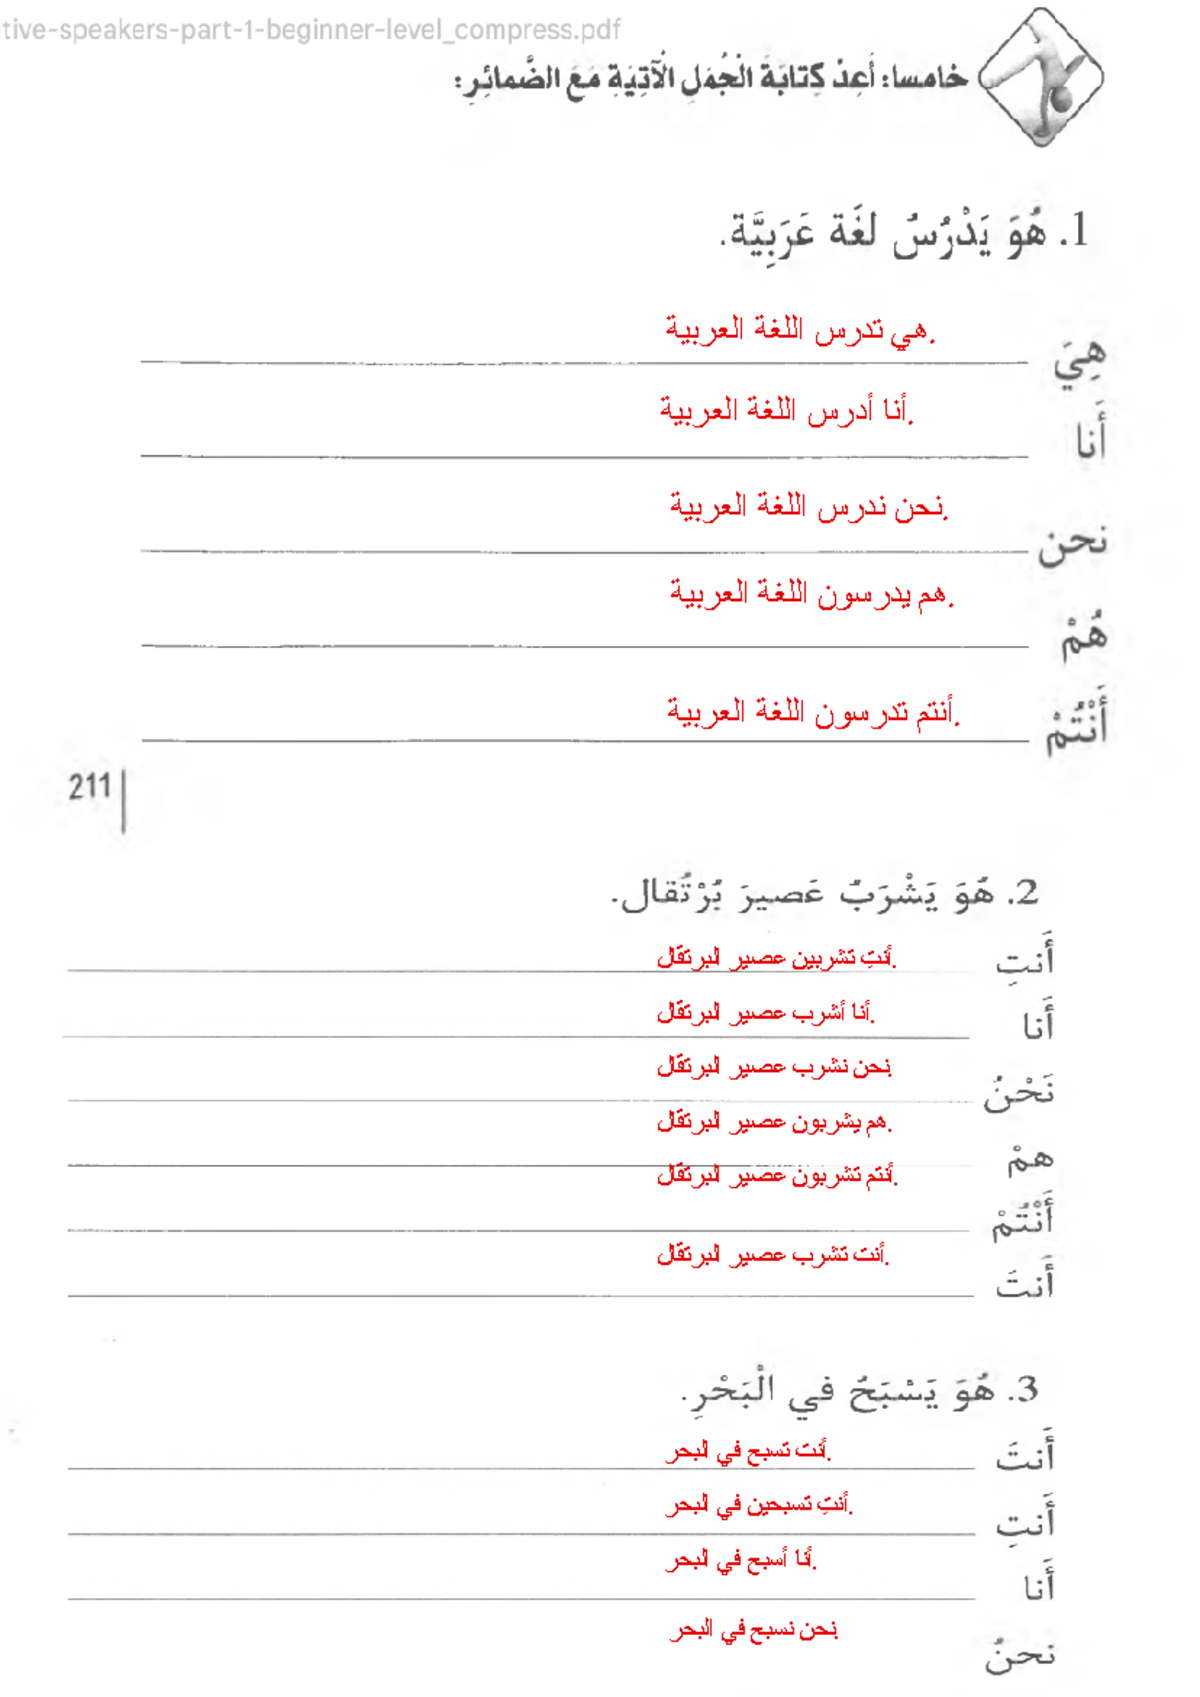 tive-speakers-part-1-beginner-level_compress.pdf
خامسا: أَعِدْ كِتابَةَ الْجُمَلِ الْآتِيَةِ مَعَ الضَّمائِرِ:
1. هُوَ يَدْرُسُ لغَة عَرَبِيَّة.
هي تدرس اللغة العربية.
هِيَ
أنا أدرس اللغة العربية.
أَنا
نحن ندرس اللغة العربية.
نحن
هم يدرسون اللغة العربية.
هُمْ
أنتم تدرسون اللغة العربية.
أَنْتُمْ
211
2. هُوَ يَشْرَبُ عَصيرَ بُرْتُقال.
أَنتِ أنتِ تشربين عصير البرتقال.
أنا أشرب عصير البرتقال.
أَنا
نحن نشرب عصير البرتقال.
نَحْنُ
هم يشربون عصير البرتقال.
همْ
أنتم تشربون عصير البرتقال.
أَنْتُمْ
أنت تشرب عصير البرتقال.
أَنتَ
3. هُوَ يَسْبَحُ في الْبَحْرِ.
أَنتَ أنت تسبح في البحر.
أنتِ تسبحين في البحر.
أَنتِ
أنا أسبح في البحر.
أَنا
نحن نسبح في البحر.
نحنُ